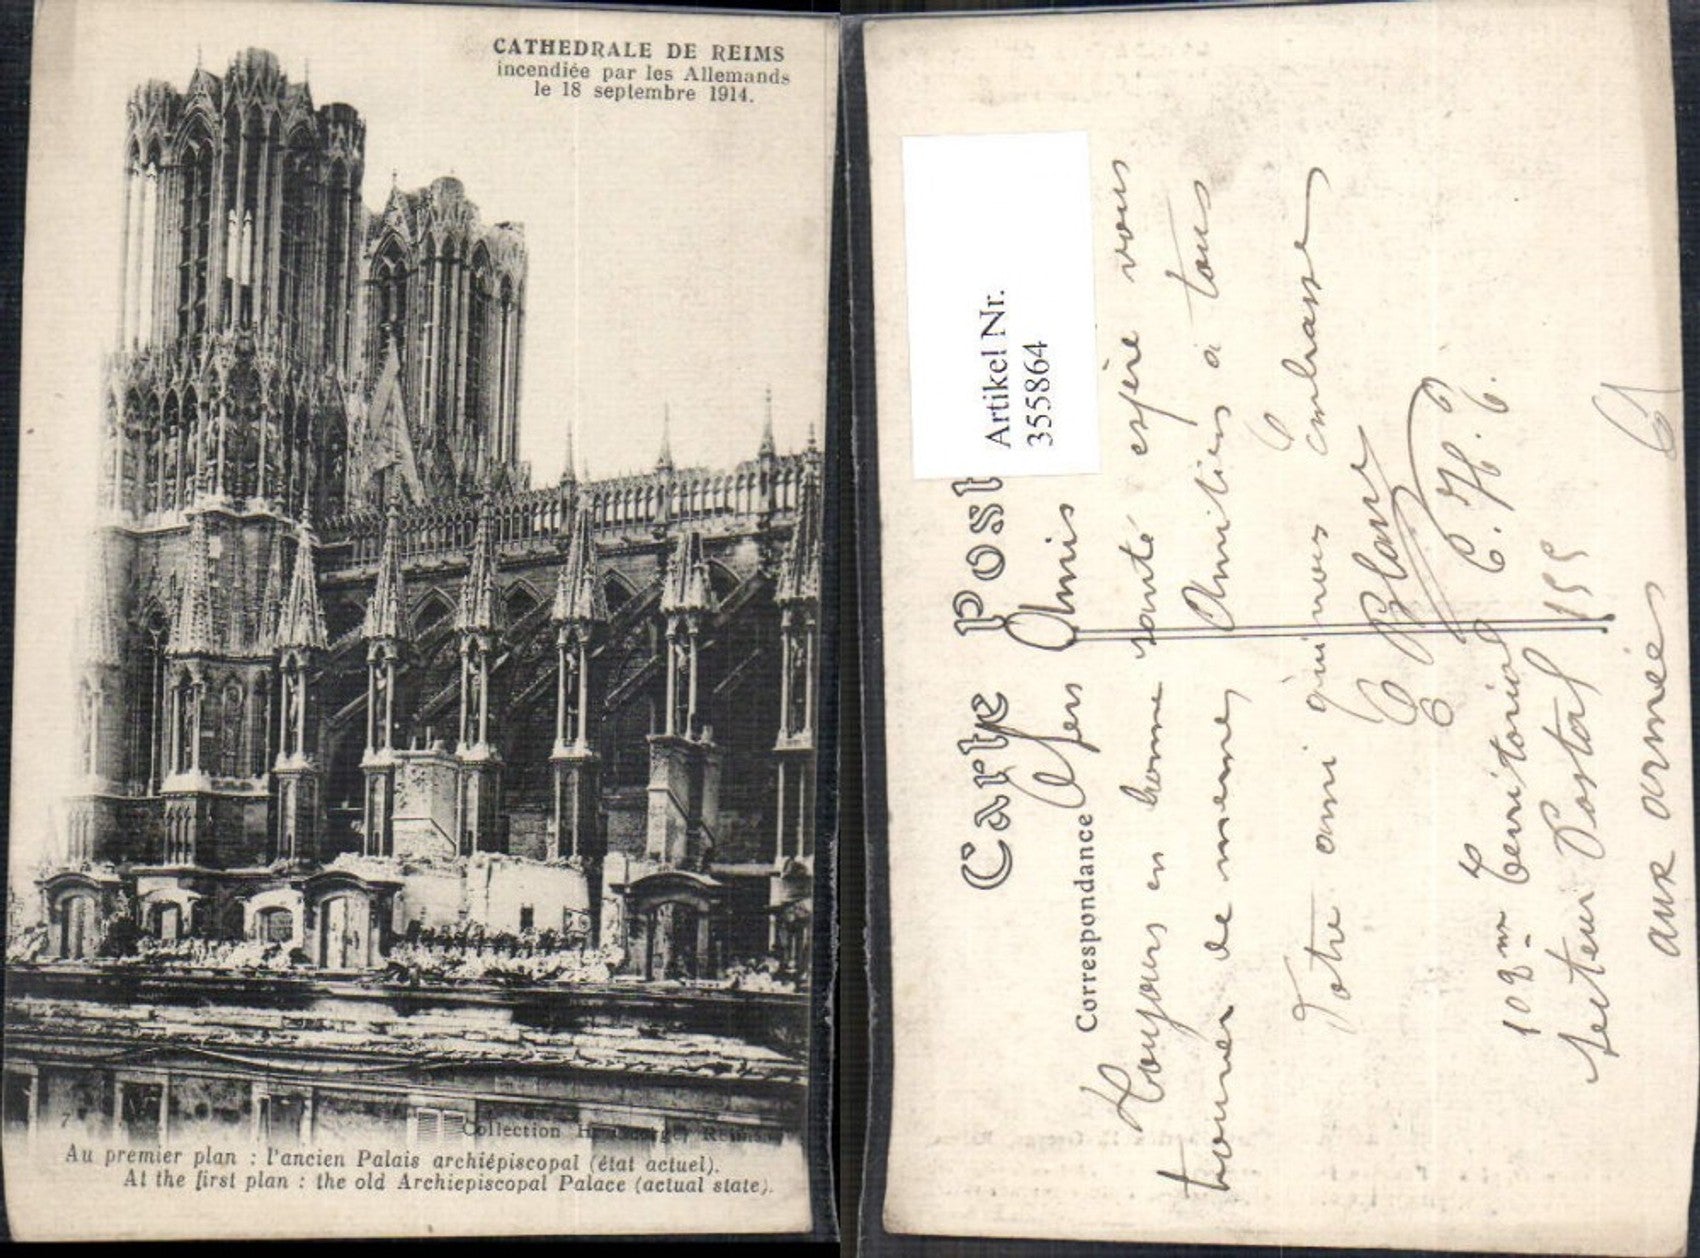 CATHEDRALE DE REIMS
incendiée par les Allemands
le 18 septembre 1914.
7
Collection H. Reims
Au premier plan : l'ancien Palais archiépiscopal (état actuel).
At the first plan : the old Archiepiscopal Palace (actual state).
Artikel Nr.
3555864
Carte Post
Correspondance
Chers Amis
Toujours en bonne santé espère vous
trouver de meme, Amitiés à tous
Votre ami qui vous embrasse
Blanc
108me Territorial C. H. R.
Secteur Postal 155
aux armées